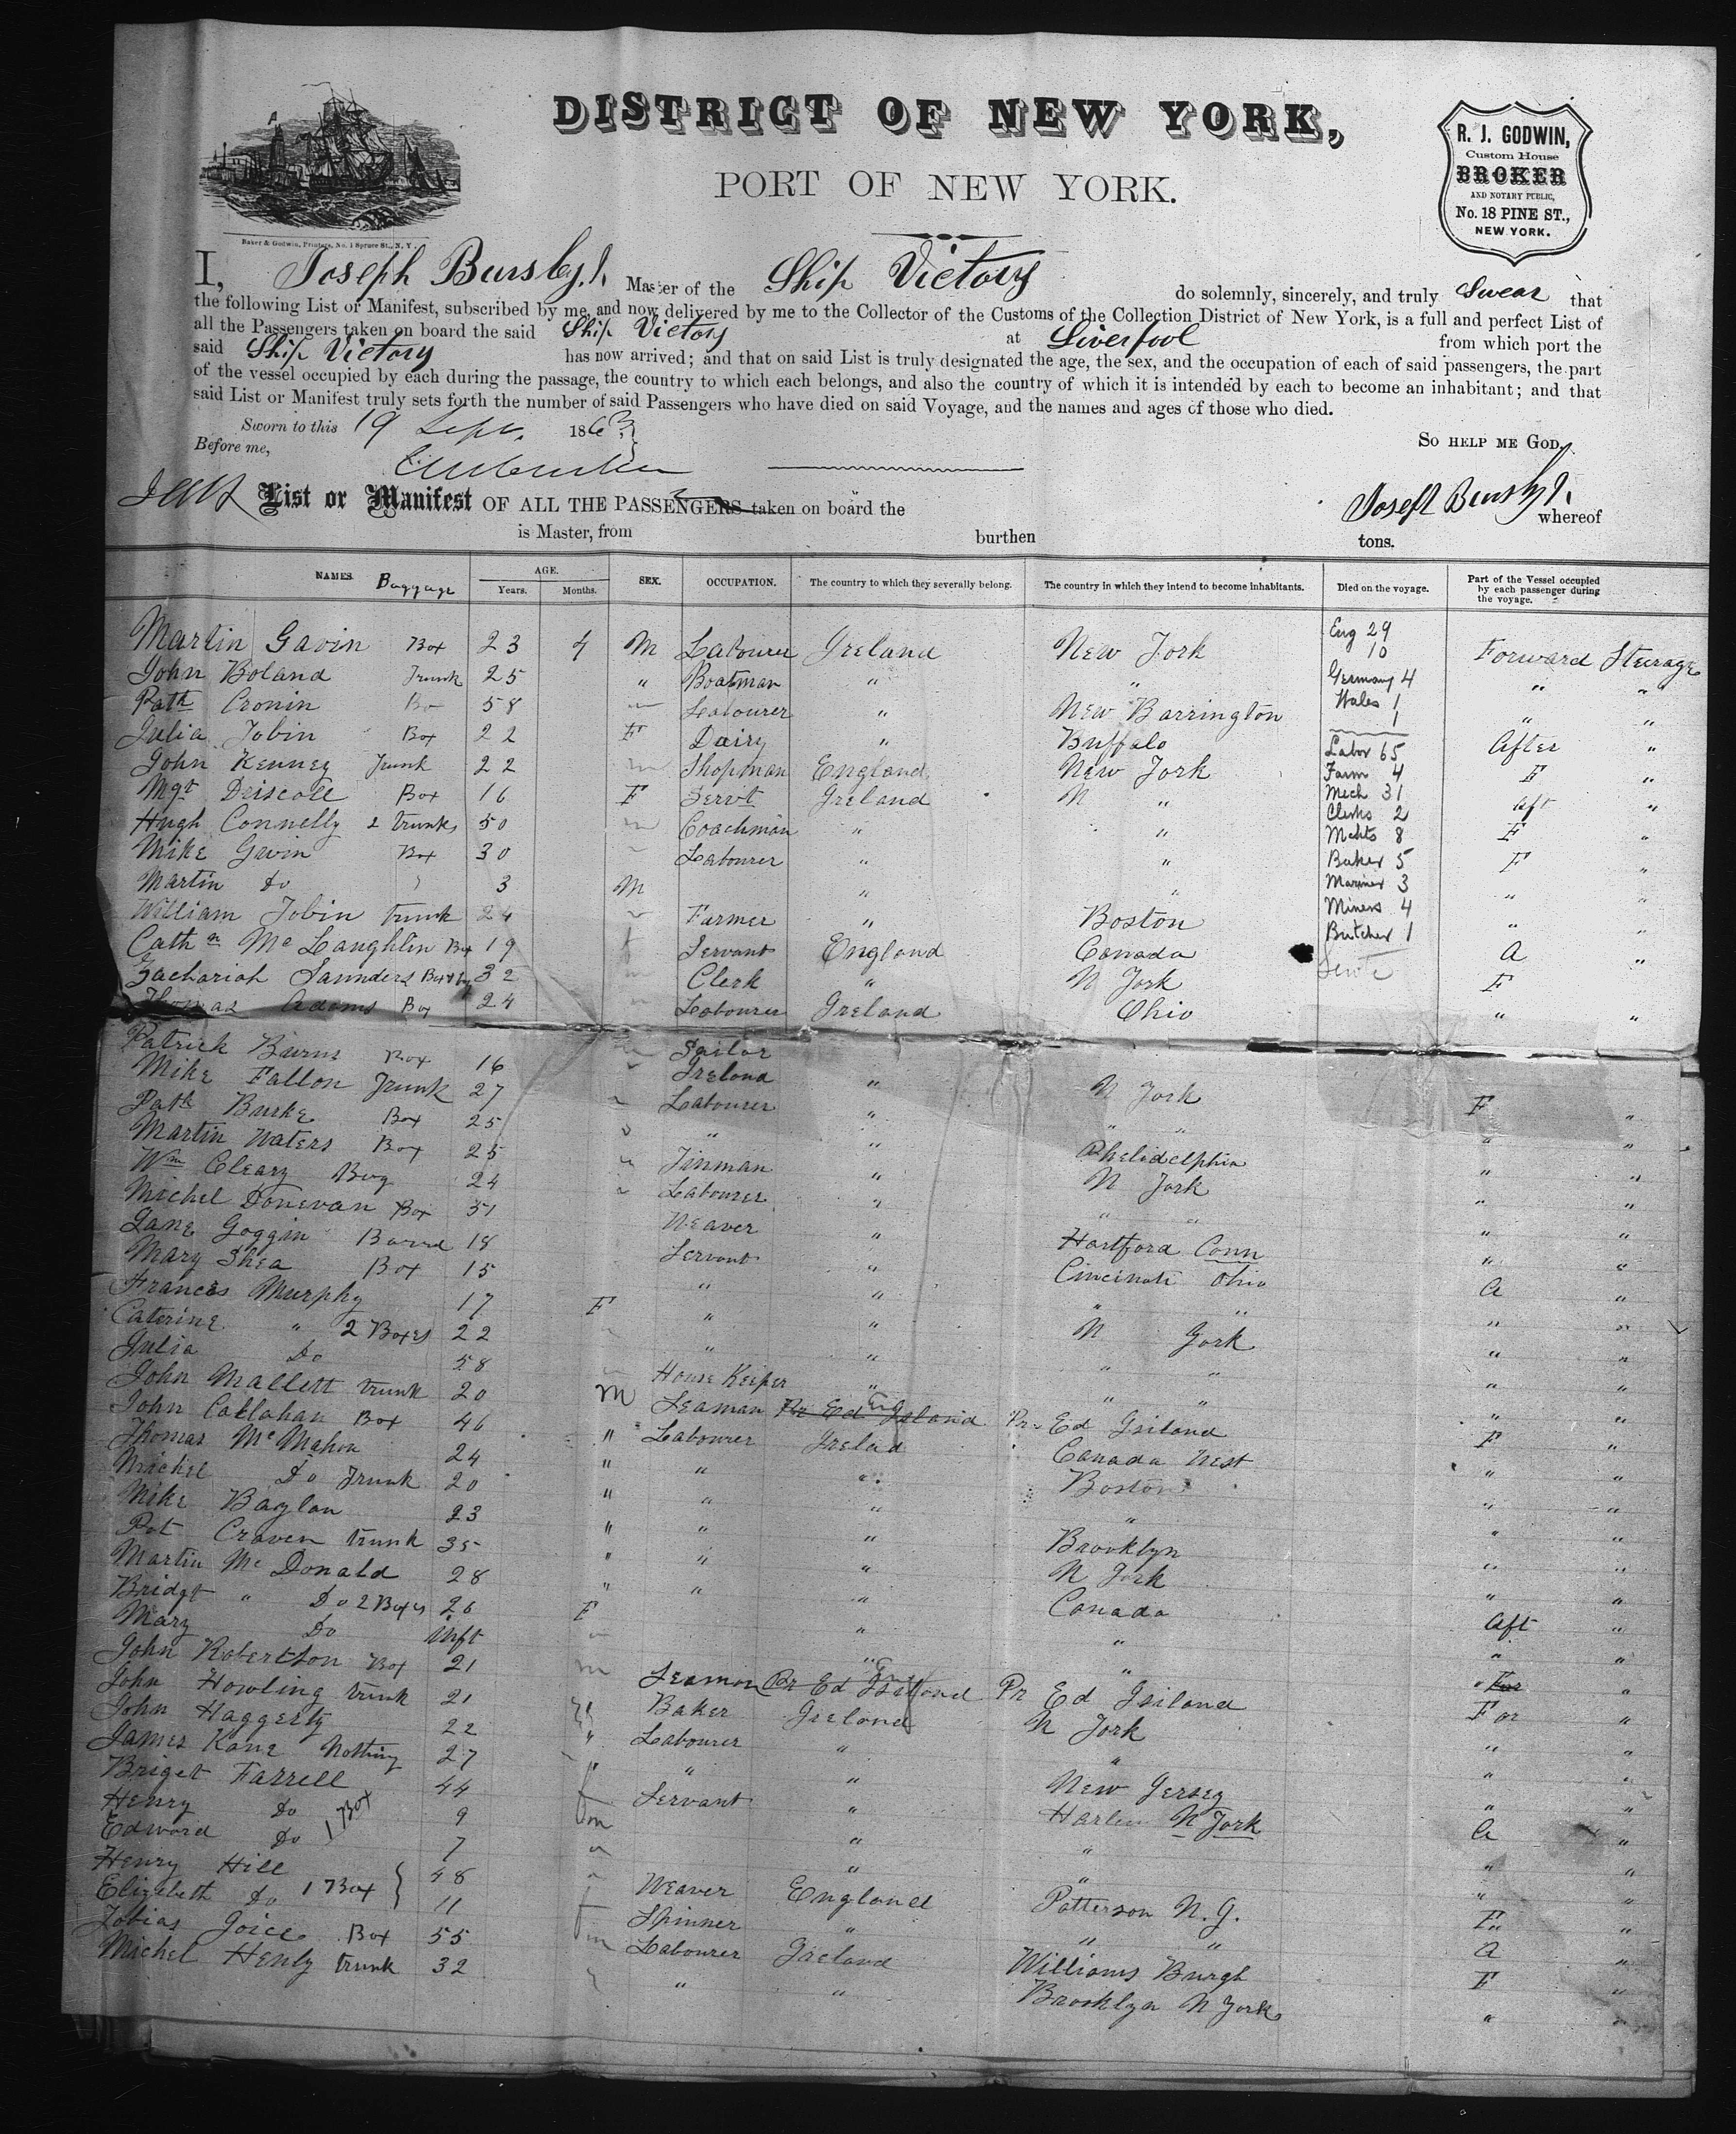 DISTRICT OF NEW YORK,
PORT OF NEW YORK.
R. J. GODWIN,
Custom House
BROKER
AND NOTARY PUBLIC,
No. 18 PINE ST.,
NEW YORK.
Baker & Godwin, Printers, No. 1 Spruce St., N. Y.
I, Joseph Master of the Ship Victory do solemnly, sincerely, and truly Swear that
the following List or Manifest, subscribed by me, and now delivered by me to the Collector of the Customs of the Collection District of New York, is a full and perfect List of
all the Passengers taken on board the said Ship Victory at Liverpool from which port the
said Ship Victory has now arrived; and that on said List is truly designated the age, the sex, and the occupation of each of said passengers, the part
of the vessel occupied by each during the passage, the country to which each belongs, and also the country of which it is intended by each to become an inhabitant; and that
said List or Manifest truly sets forth the number of said Passengers who have died on said Voyage, and the names and ages of those who died.
Sworn to this 19 Sept. 1863
So HELP ME GOD
Before me,
List or Manifest OF ALL THE PASSENGERS taken on board the whereof
is Master, from burthen tons.
NAMES. Baggage AGE. Years. Months. SEX. OCCUPATION. The country to which they severally belong. The country in which they intend to become inhabitants. Died on the voyage. Part of the Vessel occupied by each passenger during the voyage.
Martin Gavin Box 23 M Labourer Ireland New York Eng 29 10 Forward Steerage
John Boland Trunk 25 " Boatman " " Germany 4 " "
Patk Cronin Bo 58 Labourer " New Barrington Wales 1 " "
Julia Tobin Box 22 F Dairy " Buffalo 1 After "
John Kenney Trunk 22 m Shopman England New York Labor 65 F "
Mgt Driscoll Box 16 F Servt Ireland N " Farm 4 Mech 31 aft "
Hugh Connelly 2 trunks 50 m Coachman " " Clerks 2 F "
Mike Gavin Box 30 Labourer " " Mchts 8 F "
Martin Do 3 M " " Baker 5 Mariner 3 " "
William Tobin trunk 24 Farmer " Boston Miners 4 " "
Cathn Mc Laughlin Box 19 f Servant England Canada Butcher 1 A "
Zachariah Saunders 32 m Clerk " N York F "
Thomas Adams Box 24 Labourer Ireland Ohio " "
Patrick Burns Box 16 Sailor
Mike Fallon Trunk 27 Ireland " N York F "
Patk Burke Box 25 Labourer " " " " "
Martin Waters Box 25 " " Pheliadelphia " "
Wm Cleary Bag 24 Tinman " N York " "
Michel Donevan Box 31 Labourer " " " " "
Jane Goggin 18 Weaver " Hartford Conn " "
Mary Shea Box 15 Servant " Cincinati Ohio A "
Frances Murphy 17 F " " " " " "
Caterine " 2 Boxes 22 " " N York " "
Julia Do 58 " " " " " "
John Mallett trunk 20 M House Keeper " " " " "
John Callahan Box 46 " Seaman Pr Ed Island Eng Pr Ed Isiland F "
Thomas Mc Mahon 24 " Labourer Irelad Canada West " "
Michel Do Trunk 20 " " " Boston " "
Mike Baylan 23 " " " " " "
Pat Craven trunk 35 " " " Brooklyn " "
Martin Mc Donald 28 " " " N York " "
Bridgt " Do 2 Boxes 26 F " Canada aft "
Mary Do inft " " " "
John Robertson Box 21 m Seaman Pr Ed Isiland Pr Ed Isiland For "
John Howling trunk 21 Baker Ireland N York For "
John Haggerty 22 " Labourer " " " "
James Kane Nothing 27 " " " New Jersey " "
Briget Farrell 44 f Servant " Harlem N York A "
Henry Do 1 Box 9 m " " " "
Edword Do 7 " " " "
Henry Hill 1 Box 48 Weaver England Patterson N. J. F "
Elizebeth Do 11 f Spinner " " " A "
Tobias Joice Box 55 m Labourer Ireland Williams Burgh F "
Michel Henly trunk 32 " " Brooklyn N York " "